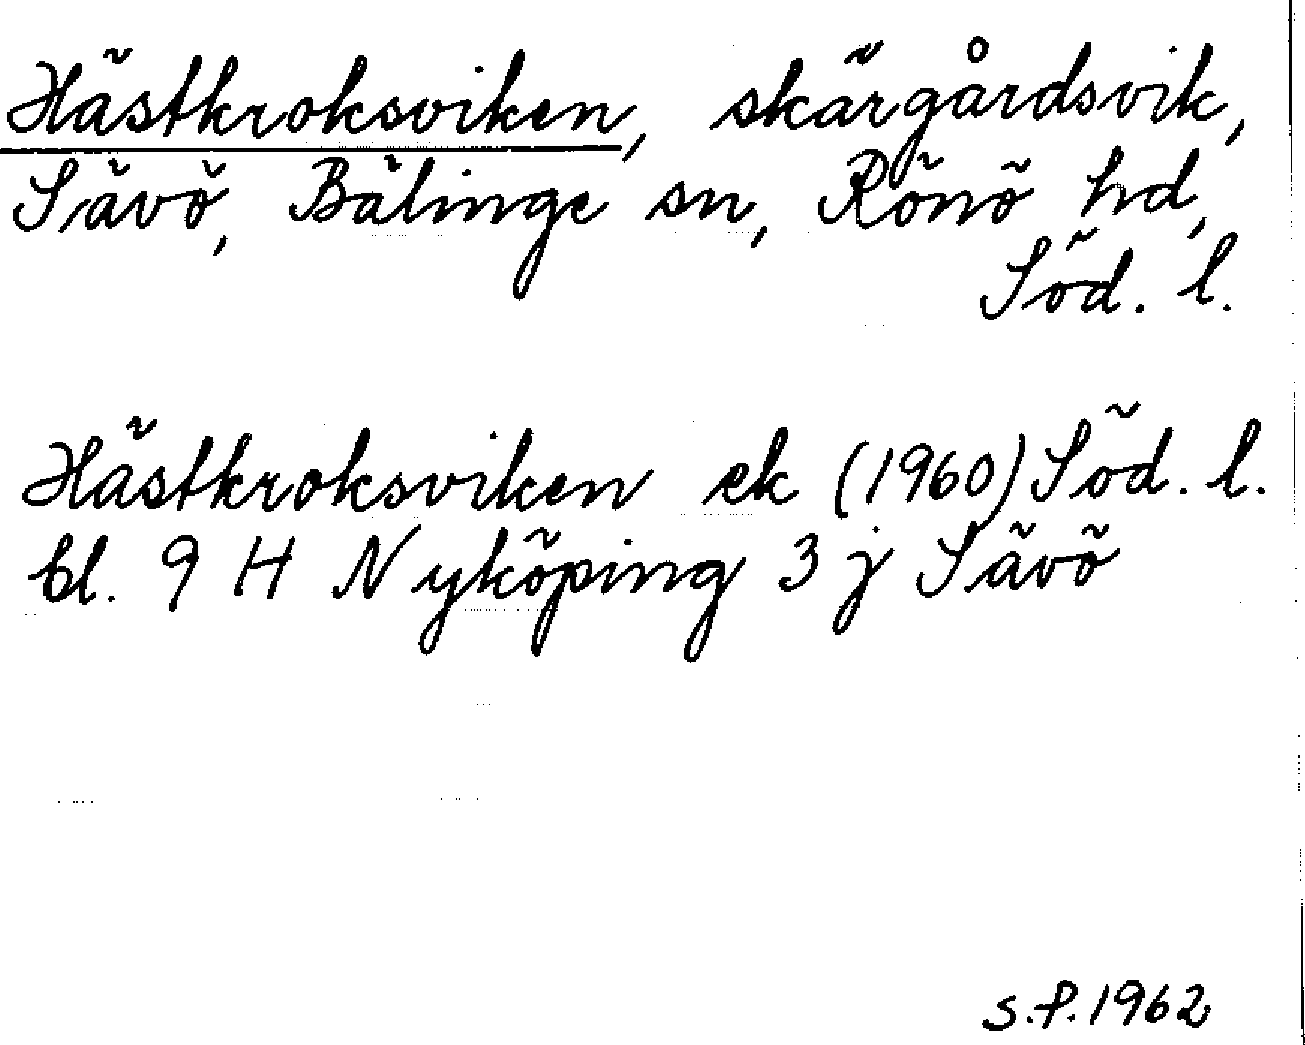 Hästkroksviken, skärgårdsvik,
Sävö, Bälinge sn, Rönö hd,
Söd. l.
Hästkroksviken ek (1960) Söd. l.
bl. 9 H Nyköping 3 j Sävö
S.P. 1962